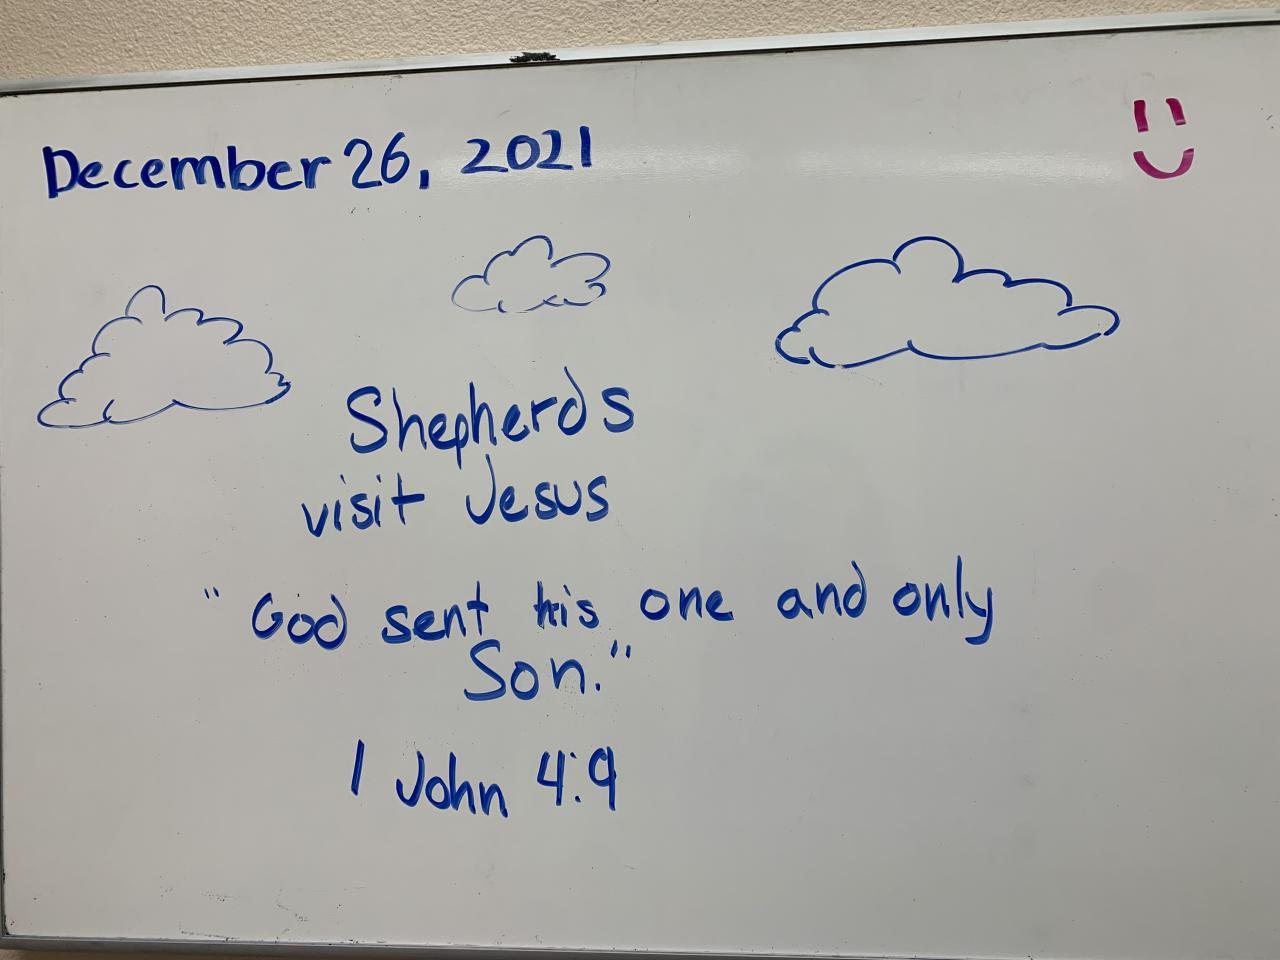 December 26, 2021
Shepherds
visit Jesus
"God sent his one and only
Son."
1 John 4:9